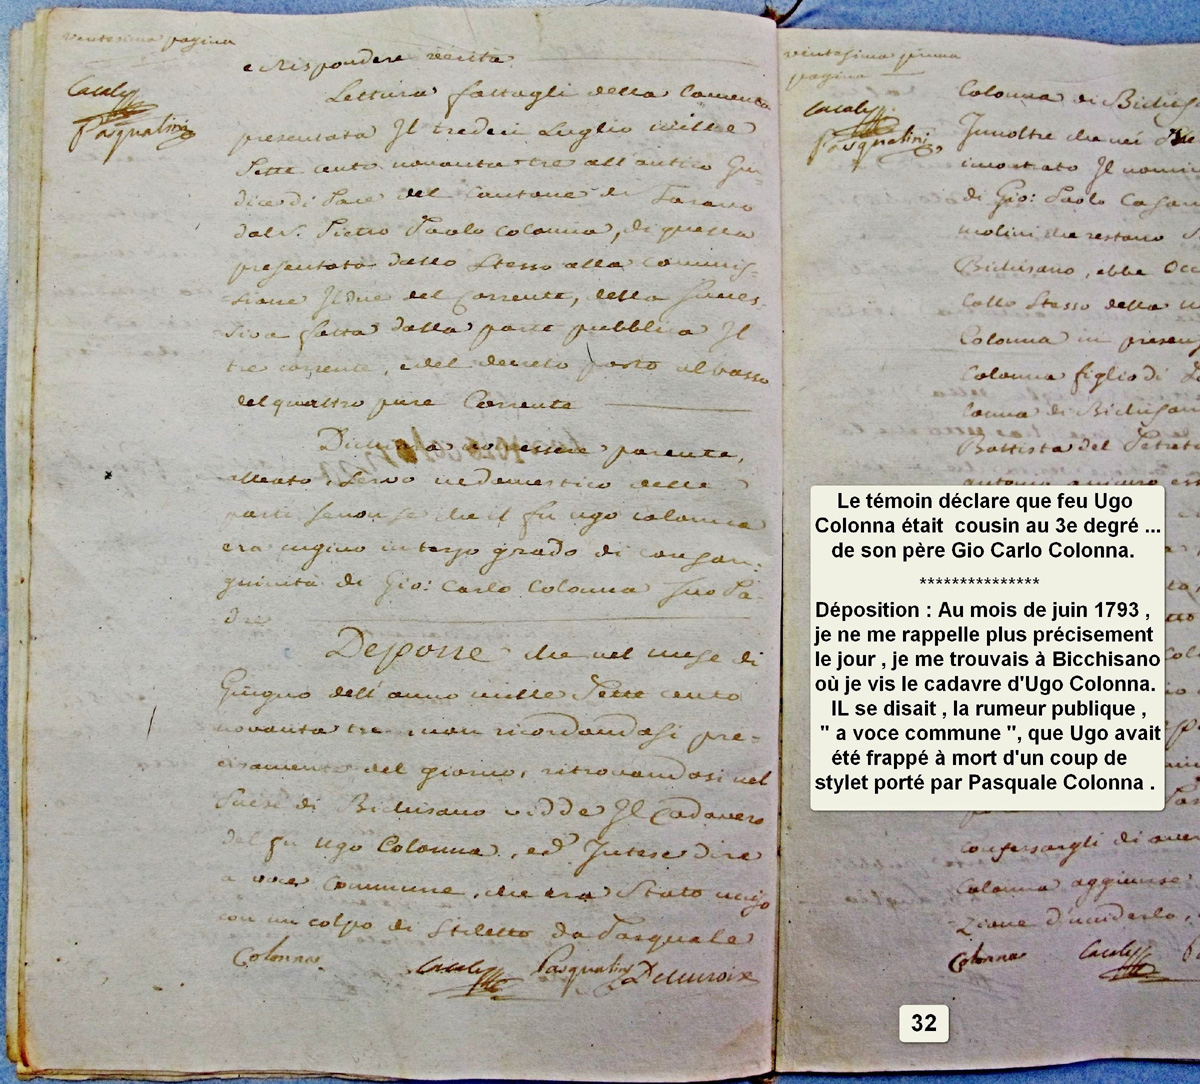 ventesima pagina
e Rispondere verità
Casale
Pasqualini
Lettura fattagli della lamenta
presentata Il tredeci Luglio mille
Sette cento novanta tre all'antico Giu
dice di Pace del Cantone di Taravo
dal S. Pietro Paolo Colonna, di questa
presentata dallo Stesso alla Commis-
sione Il due del Corrente, della succes-
siva fatta dalla parte pubblica Il
tre corrente, e del decreto posto al basso
del quattro pure Corrente
Dichiara non essere parente,
alleato, servo ne domestico delle
parti senon se che il fu Ugo Colonna
era cugino in terzo grado di consan-
guinità di Gio: Carlo Colonna suo Pa-
dre
Depone che nel mese di
Giugno dell'anno mille Sette cento
novanta tre non ricordandosi pre-
cisamente del giorno, ritrovandosi nel
Paese di Bichisano vidde Il Cadavero
del fu Ugo Colonna, ed Intese dire
a voce Commune, che era Stato ucciso
con un colpo di Stiletto da Pasquale
Colonna Casale Pasqualini
ventesima prima
pagina
Casale
Pasqualini
Colonna di Bichis
Innoltre che nei
incontrato Il nomi
di Gio: Paolo Casan
molini che restano
Bichisano, ebbe Occ
collo Stesso della
Colonna in presen
Colonna figlio di
lonna di Bichisan
Battista del Petreti
Le témoin déclare que feu Ugo
Colonna était cousin au 3e degré ...
de son père Gio Carlo Colonna.
***************
Déposition : Au mois de juin 1793 ,
je ne me rappelle plus précisement
le jour , je me trouvais à Bicchisano
où je vis le cadavre d'Ugo Colonna.
IL se disait , la rumeur publique ,
" a voce commune ", que Ugo avait
été frappé à mort d'un coup de
stylet porté par Pasquale Colonna .
confessargli di aver
Colonna aggiunse
zione d'uciderlo,
Colonna Casale
32